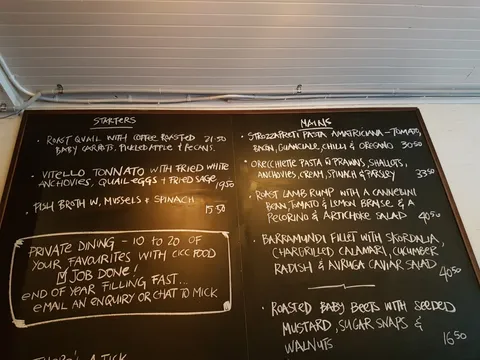 STARTERS
• ROAST QUAIL WITH COFFEE ROASTED 21.50
BABY CARROTS, PICKLED APPLE & PECANS.
• VITELLO TONNATO WITH FRIED WHITE
ANCHOVIES, QUAIL EGGS + FRIED SAGE 19.50
• FISH BROTH W, MUSSELS & SPINACH 15.50
PRIVATE DINING - 10 TO 20 OF
YOUR FAVOURITES WITH FOOD
☑ JOB DONE!
END OF YEAR FILLING FAST...
EMAIL AN ENQUIRY OR CHAT TO MICK
THERE'S A TICK
MAINS
• STROZZAPRETI PASTA AMATRICIANA - TOMATO,
BACON, GUANCIALE, CHILLI & OREGANO 30.50
• ORECCHIETTE PASTA W PRAWNS, SHALLOTS,
ANCHOVIES, CREAM, SPINACH & PARSLEY 33.50
• ROAST LAMB RUMP WITH A CANNELINI
BEAN, TOMATO & LEMON BRAISE & A
PECORINO & ARTICHOKE SALAD 40.50
• BARRAMUNDI FILLET WITH SKORDALIA,
CHARGRILLED CALAMARI, CUCUMBER
RADISH & AVRUGA CAVIAR SALAD 40.50
• ROASTED BABY BEETS WITH SEEDED
MUSTARD, SUGAR SNAPS &
WALNUTS 16.50